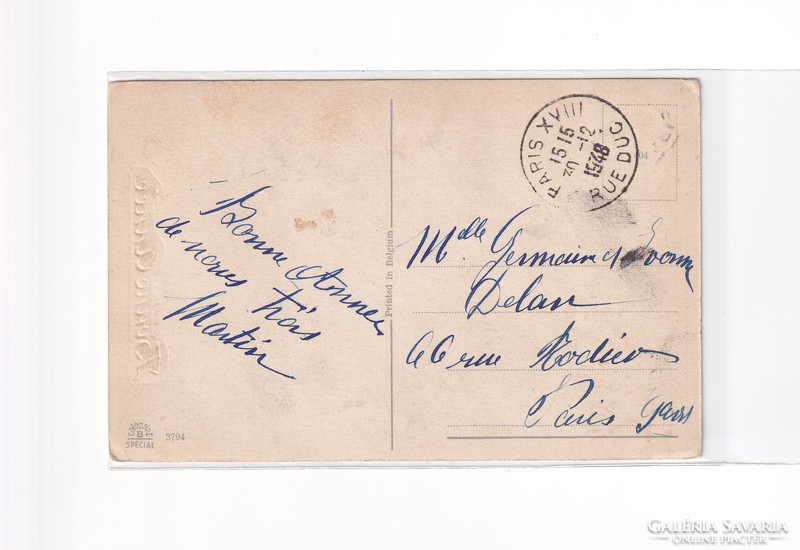 Bonne Année
de nous trois
Martin
Printed in Belgium
SPECIAL
3294
PARIS XVIII
15 15
30 -12
1948
RUE DUC
Mdlle Germaine & Yvonne
Delan
66 rue Nodier
Paris
GALÉRIA SAVARIA
ONLINE PIACTÉR